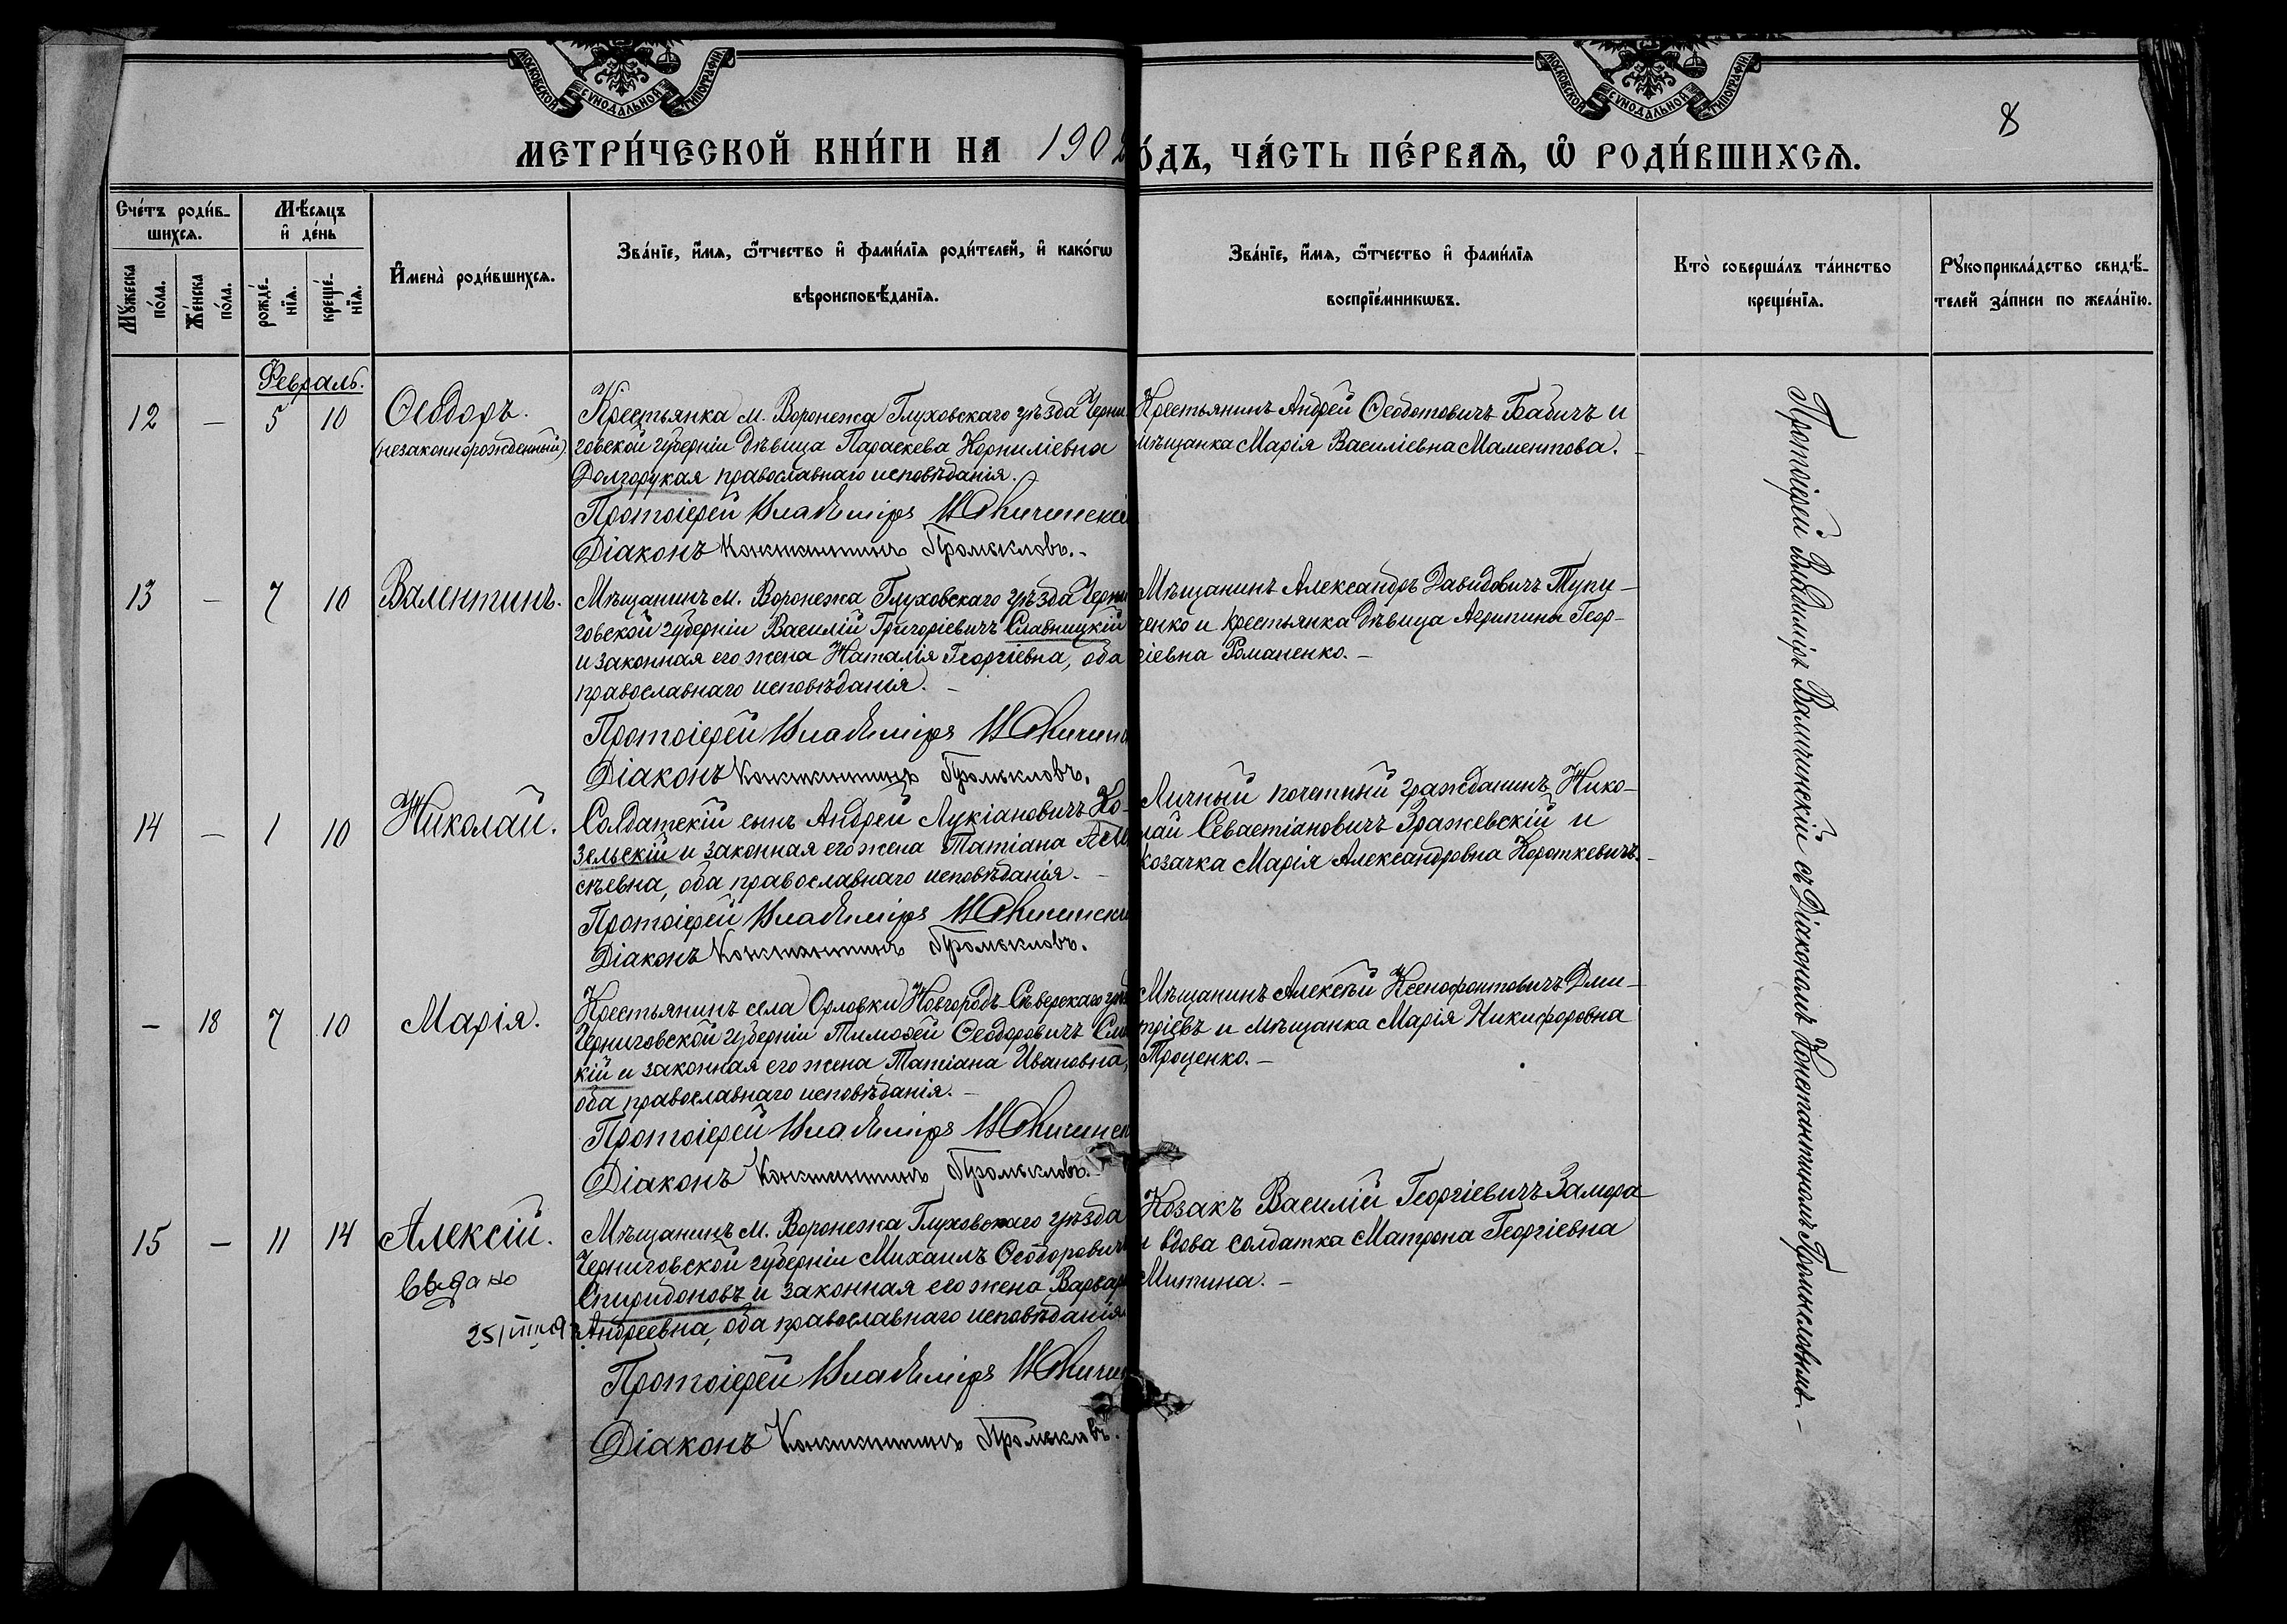 МОСКОВСКОЙ СУНОДАЛЬНОЙ ТИПОГРАФІИ.
МОСКОВСКОЙ СУНОДАЛЬНОЙ ТИПОГРАФІИ.
8
МЕТРИ́ЧЕСКОЙ КНИ́ГИ НА 1902
О́ДЪ, ЧА́СТЬ ПЕ́РВАѦ, Ѡ҆ РОДИ́ВШИХСѦ.
Сче́тъ роди́в-
шихсѧ.
Мꙋ́жеска по́ла.
Же́нска по́ла.
Мѣ́сѧцъ
и҆ де́нь
рожде́-
нїѧ.
креще́-
нїѧ.
И҆мена̀ роди́вшихсѧ.
Зва́нїе, и҆́мѧ, ѻ҆́тчество и҆ фами́лїѧ роди́телей, и҆ како́гѡ
вѣроисповѣ́данїѧ.
Зва́нїе, и҆́мѧ, ѻ҆́тчество и҆ фами́лїѧ
воспрїе́мникѡвъ.
Кто̀ соверша́лъ та́инство
креще́нїѧ.
Рꙋкоприкла́дство свидѣ́-
телей за́писи по жела́нїю.
Февраль.
12 — 5 10 Ѳеодоръ.
(незаконнорожденный)
Крестьянка м. Воронежа Глуховскаго уѣзда Черни
говской губерніи дѣвица Параскева Корниліевна
Долгорукая православнаго исповѣданія.
Протоіерей Владиміръ
Діаконъ Константинъ Промысловъ.-
Крестьянинъ Андрей Ѳеодотовичъ Бабичъ и
мѣщанка Марія Василіевна Маментова.
13 — 7 10 Валентинъ.
Мѣщанинъ м. Воронежа Глуховскаго уѣзда Черни
говской губерніи Василій Григоріевичъ Славницкій
и законная его жена Наталія Георгіевна, оба
православнаго исповѣданія. —
Протоіерей Владиміръ
Діаконъ Константинъ Промысловъ.
Мѣщанинъ Александръ Давидовичъ Тупи-
ченко и крестьянка дѣвица Агрипина Геор-
гіевна Романенко. —
14 — 1 10 Николай.
Солдатскій сынъ Андрей Лукіановичъ Ко-
зельскій и законная его жена Татіана
сѣевна, оба православнаго исповѣданія. —
Протоіерей Владиміръ
Діаконъ Константинъ Промысловъ.
Личный почетный гражданинъ Нико-
лай Севастіановичъ Зражевскій и
козачка Марія Александровна Короткевичъ. —
— 18 7 10 Марія.
Крестьянинъ села Орловки Новгородъ Сѣверскаго уѣз
Черниговской губерніи Тимоѳей Ѳеодоровичъ
кій и законная его жена Татіана Ивановна,
оба православнаго исповѣданія. —
Протоіерей Владиміръ
Діаконъ Константинъ Промысловъ.
Мѣщанинъ Алексѣй Ксенофонтовичъ Дми-
тріевъ и мѣщанка Марія Никифоровна
Проценко. —
15 — 11 14 Алексій.
Выдано
Мѣщанинъ м. Воронежа Глуховскаго уѣзда
Черниговской губерніи Михаилъ Ѳеодоровичъ
Спиридоновъ и законная его жена Варвара
Андреевна, оба православнаго исповѣданія
Протоіерей Владиміръ
Діаконъ Константинъ Промысловъ.
Козакъ Василій Георгіевичъ Замора
и вдова солдатка Матрона Георгіевна
Митина. —
Протоіерей Владиміръ Величинскій съ Діакономъ Константиномъ Промысловымъ. —